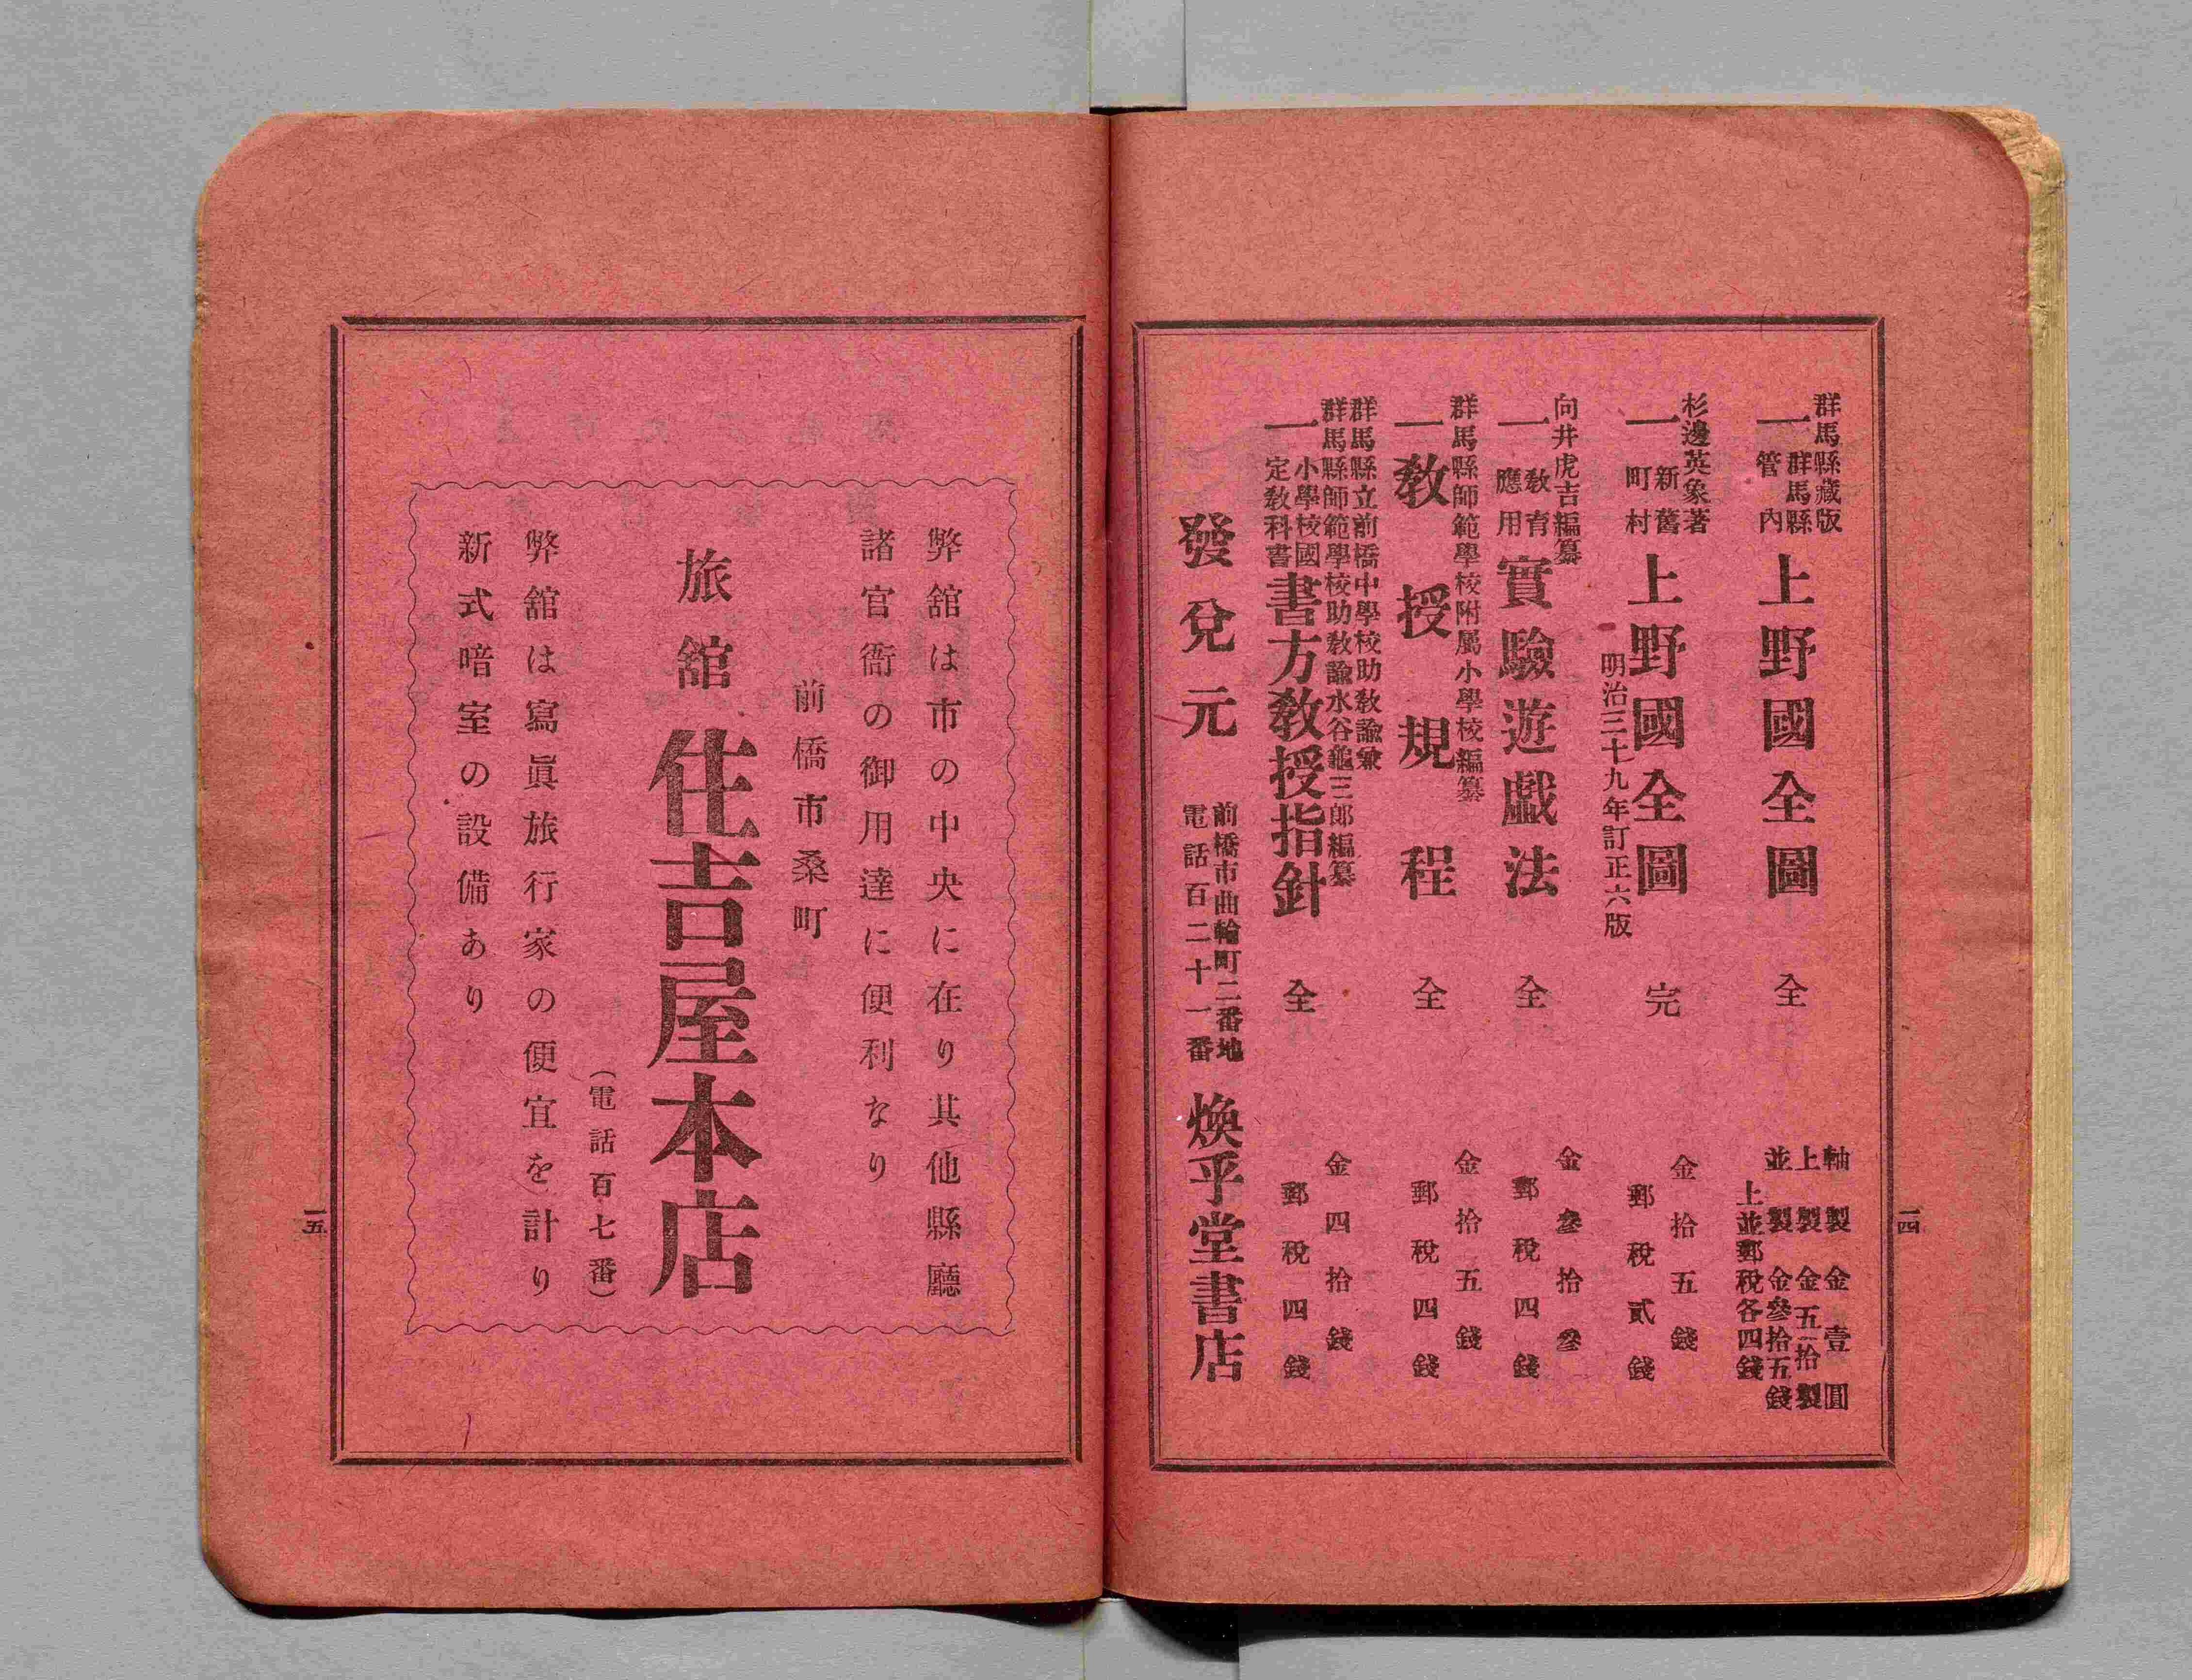 群馬縣藏版
一 群馬縣
管內
上野國全圖 全
軸製金壹圓
上製金五拾製
並製金參拾五錢
上並郵稅各四錢
杉邊英象著
一 新舊
町村
上野國全圖 完
明治三十九年訂正六版
金拾五錢
郵稅貳錢
向井虎吉編纂
一 教育
應用
實驗遊戲法 全
金參拾參
郵稅四錢
群馬縣師範學校附屬小學校編纂
一 教授規程 全
金拾五錢
郵稅四錢
群馬縣立前橋中學校助教諭兼
群馬縣師範學校助教諭水谷龜三郎編纂
一 小學校國
定教科書
書方教授指針 全
金四拾錢
郵稅四錢
發兌元
前橋市曲輪町二番地
電話百二十一番
煥乎堂書店
一四
弊舘は市の中央に在り其他縣廳
諸官衙の御用達に便利なり
前橋市桑町
旅舘 住吉屋本店
（電話百七番）
弊舘は寫眞旅行家の便宜を計り
新式暗室の設備あり
一五